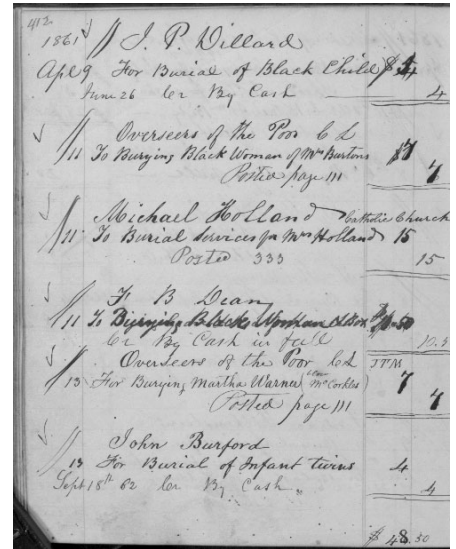 412
1861 J. P. Dillard
Apl 9 For Burial of Black Child $ 4
June 26 Cr By Cash 4
Overseers of the Poor C L
11 To Burying Black Woman of Mrs Burtons $7 7
Posted page 111
Michael Holland Catholic Church
11 To Burial Services for Mrs Holland 15
Posted 333 15
F B Deany
11 To Burying Black Woman & Box $10.50
Cr By Cash in full 10.5
Overseers of the Poor C L J T M
13 For Burying Martha Warner McCorkles 7
Posted page 111 7
John Burford
13 For Burial of Infant twins 4
Sept 18th 62 Cr By Cash 4
$ 48.50